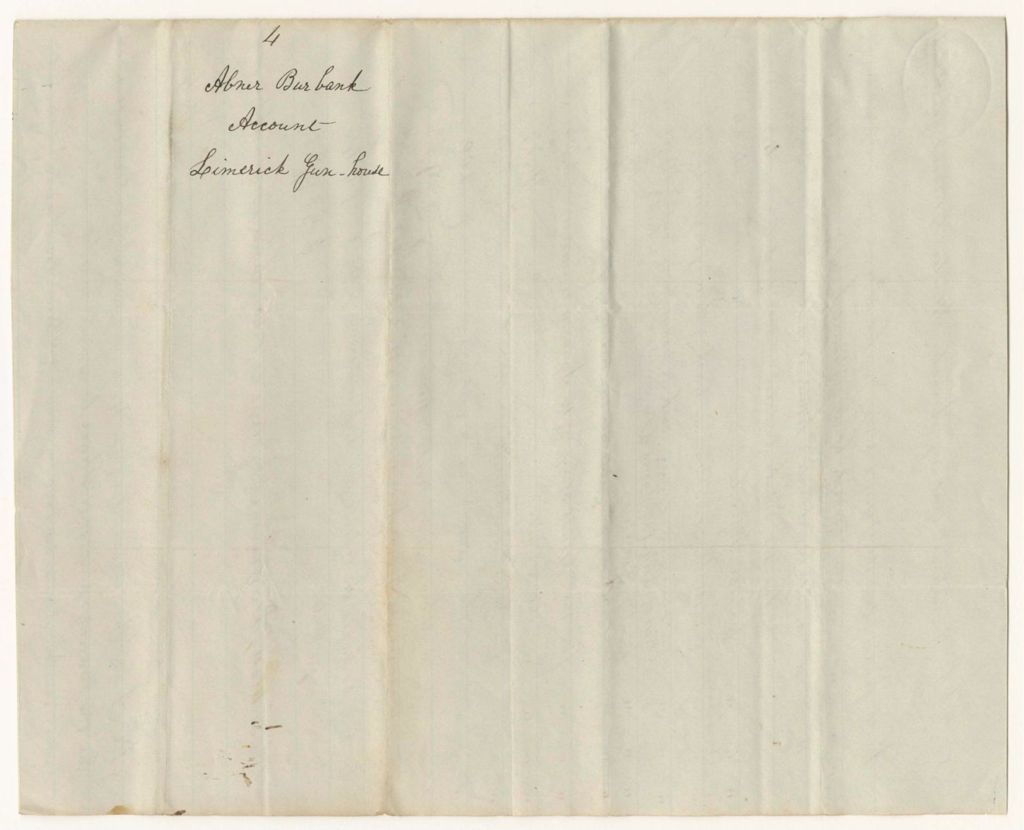 4
Abner Burbank
Account
Limerick Gun-house